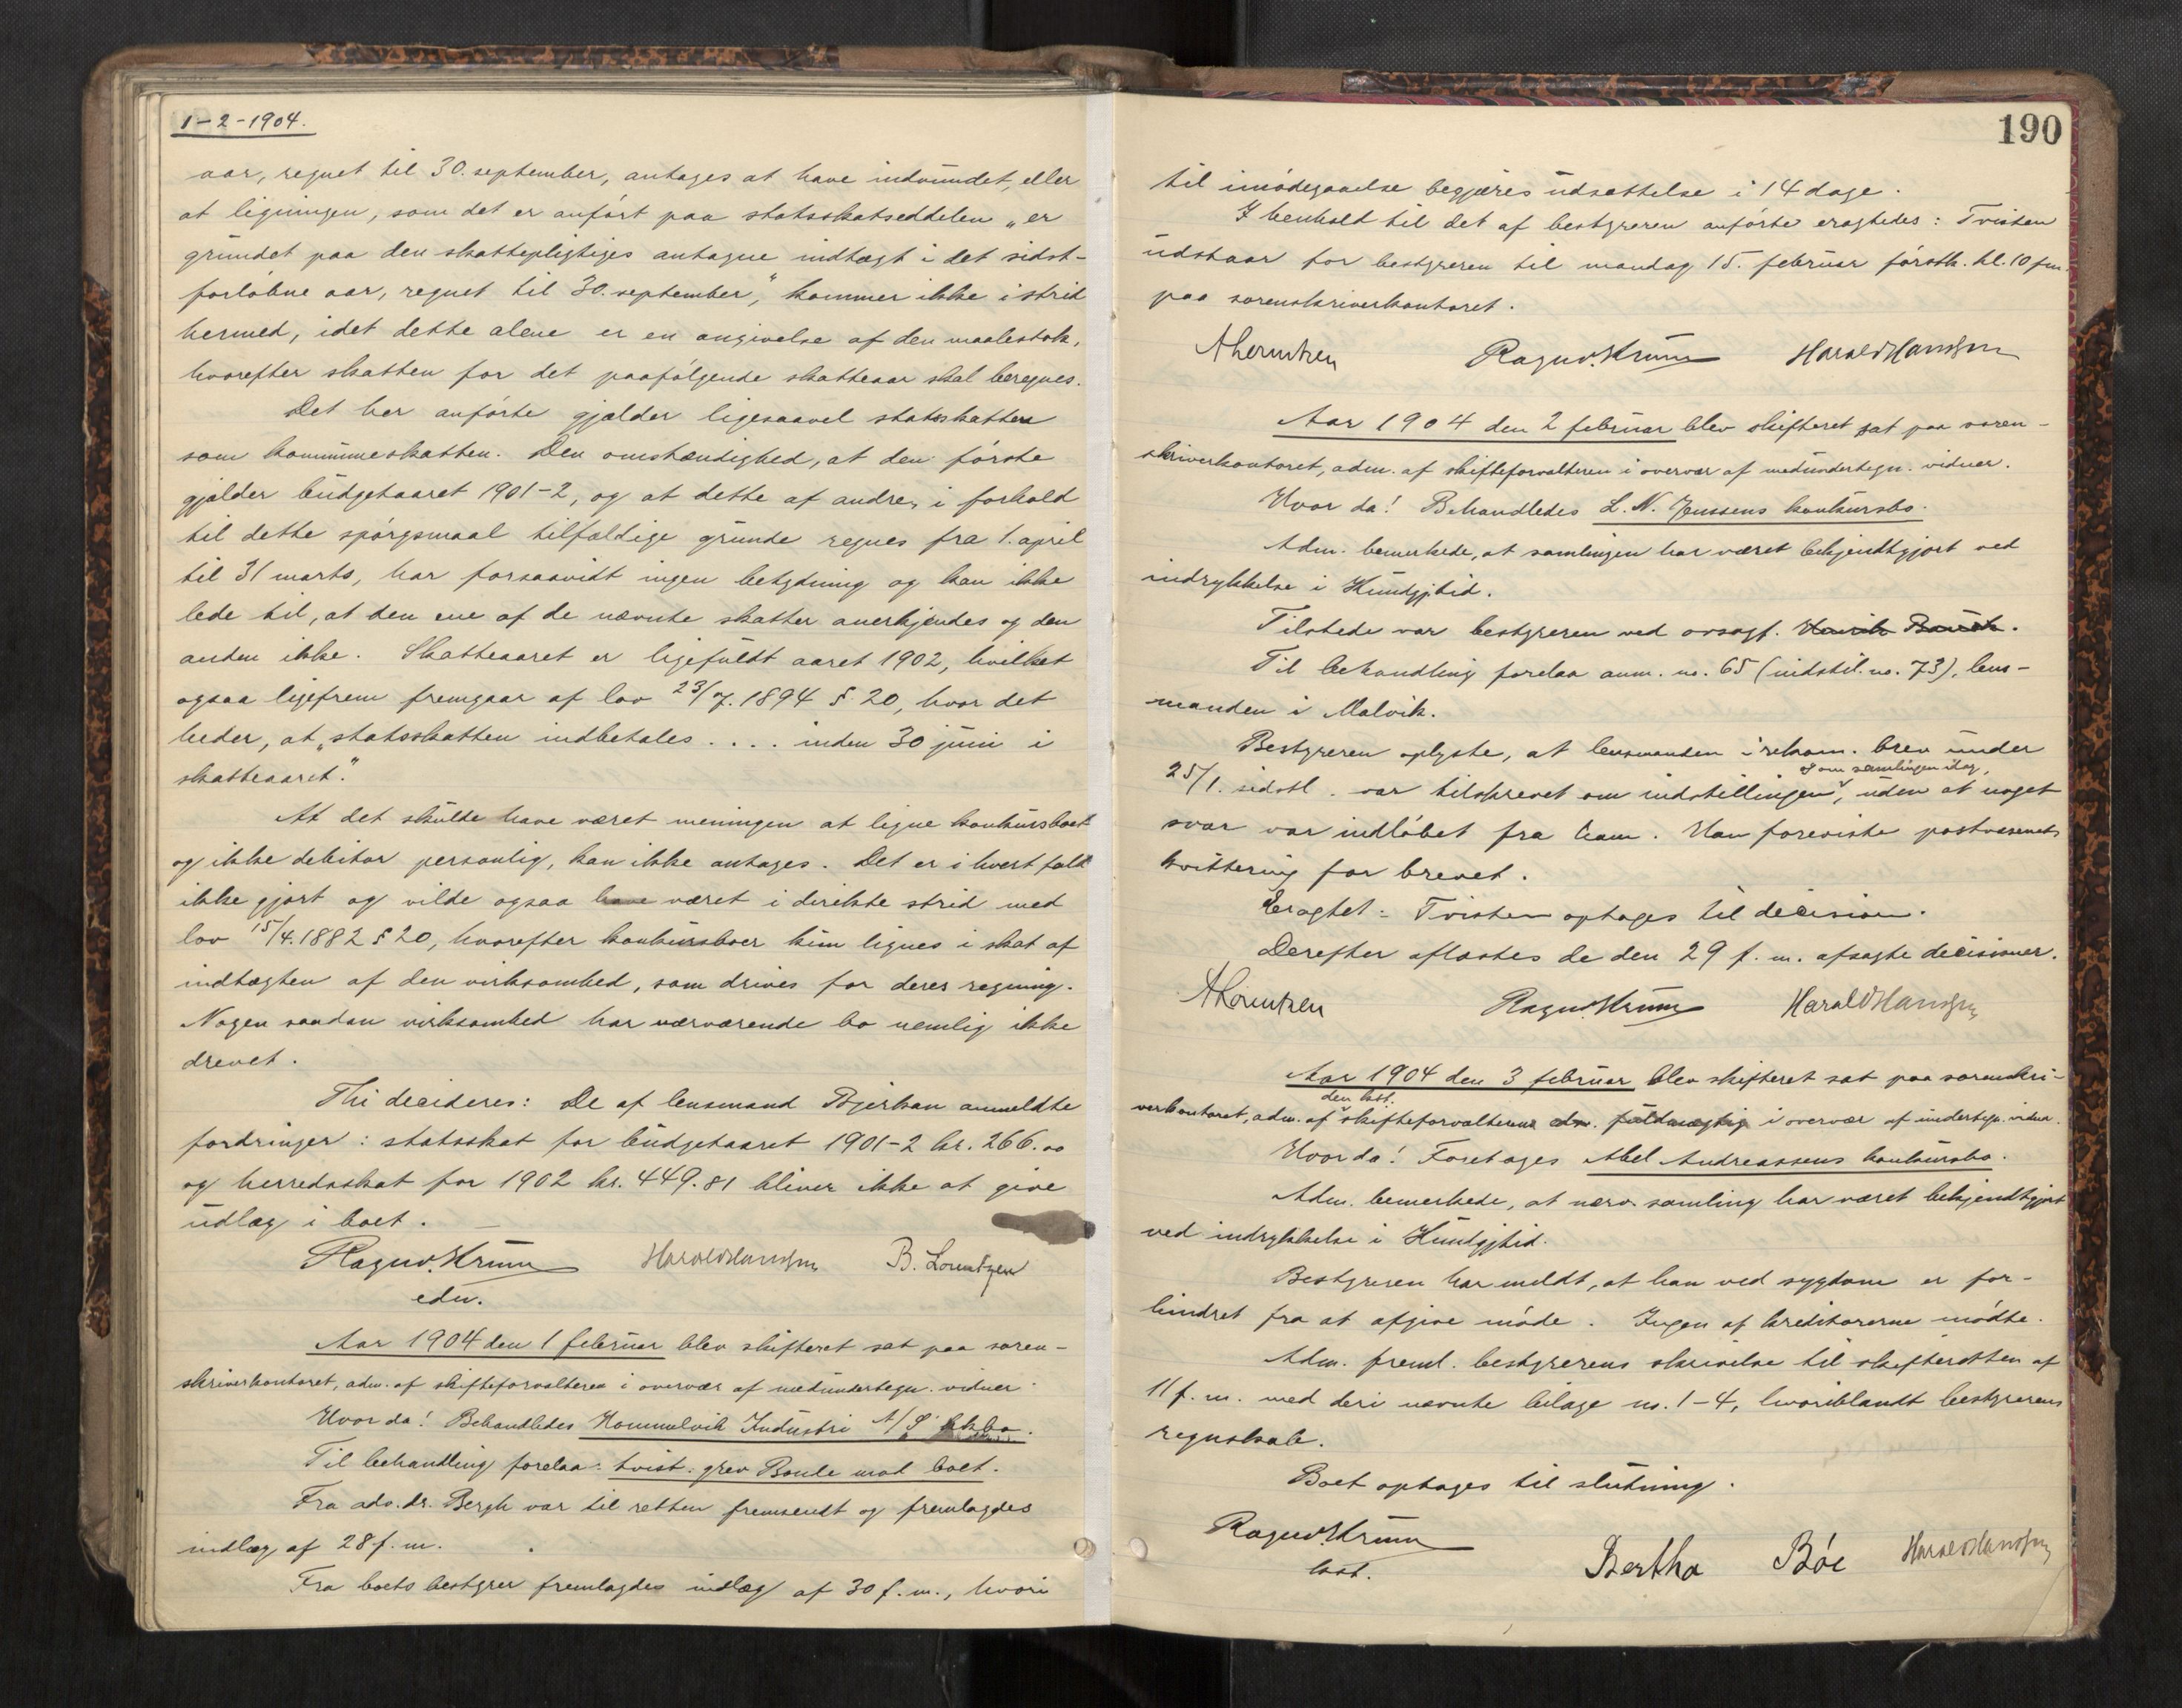 1-2-1904.
aar, regnet til 30. september, antages at have indvundet, eller
at ligningen, som det er anført paa statsskatseddelen „er
grundet paa den skattepligtiges antagne indtægt i det sidst-
forløbne aar, regnet til 30. september“, kommer ikke i strid
hermed, idet dette alene er en angivelse af den maalestok,
hvorefter skatten for det paafølgende skatteaar skal beregnes.
Det her anførte gjælder ligesaavel statsskatten
som kommuneskatten. Den omstændighed, at den første
gjælder budgetaaret 1901-2, og at dette af andre, i forhold
til dette spørgsmaal tilfældige grunde regnes fra 1. april
til 31 marts, har forsaavidt ingen betydning og kan ikke
lede til, at den ene af de nævnte skatter anerkjendes og den
anden ikke. Skatteaaret er ligefuldt aaret 1902, hvilket
ogsaa ligefrem fremgaar af lov 23/7. 1894 § 20, hvor det
heder, at „statsskatten indbetales .... inden 30 juni i
skatteaaret“.
At det skulde have været meningen at ligne konkursboet
og ikke debitor personlig, kan ikke antages. Det er i hvert fald
ikke gjort og vilde ogsaa have været i direkte strid med
lov 15/4. 1882 § 20, hvorefter konkursboer kun lignes i skat af
indtægten af den virksomhed, som drives for deres regning.
Nogen saadan virksomhed har nærværende bo nemlig ikke
drevet.
Thi decideres: De af lensmand Bjerkan anmeldte
fordringer: statsskat for budgetaaret 1901-2 kr. 266.00
og herredsskat for 1902 kr. 449.81 bliver ikke at give
udlæg i boet.
Ragnv. Krum Harald Hansen B. Lorentzen
edv.
Aar 1904 den 1 februar blev skifteret sat paa soren-
skriverkontoret, adm. af skifteforvalteren i overvær af medundertegn. vidner.
Hvor da! Behandledes Hommelvik Industri A/S kkbo.
Til behandling forelaa: tvist. grev Bonde mod boet.
Fra adv. dr. Bergh var til retten fremsendt og fremlagdes
indlæg af 28 f. m.
Fra boets bestyrer fremlagdes indlæg af 30 f. m., hvori
190
til imødegaaelse begjæres udsættelse i 14 dage.
I henhold til det af bestyreren anførte eragtedes: Tvisten
udstaar for bestyreren til mandag 15. februar førstk. kl. 10 fm.
paa sorenskriverkontoret.
A Lorentzen Ragnv. Krum Harald Hansen
Aar 1904 den 2 februar blev skifteret sat paa soren-
skriverkontoret, adm. af skifteforvalteren i overvær af medundertegn. vidner.
Hvor da! Behandledes L. N. Jenssens konkursbo.
Adm. bemerkede, at samlingen har været bekjendtgjort ved
indrykkelse i Kundgjtid.
Tilstede var bestyreren ved ovsagf. Henrik Bauck.
Til behandling forelaa anm. no. 65 (indstil. no. 73), lens-
manden i Malvik.
Bestyreren oplyste, at lensmanden i rekom. brev under
25/1. sidstl. var tilskrevet om indstillingen og om samlingen idag, uden at noget
svar var indløbet fra ham. Han foreviste postvæsenets
kvittering for brevet.
Eragtet: Tvisten optages til decision.
Derefter aflæstes de den 29 f. m. afsagte decisioner.
A Lorentzen Ragnv. Krum Harald Hansen
Aar 1904 den 3 februar blev skifteret sat paa sorenskri-
verkontoret, adm. af den kst. skifteforvalteren edv. fuldmægtig i overvær af undertegn. vidner.
Hvor da! Foretages Abel Andreassens konkursbo.
Adm. bemerkede, at nærv. samling har været bekjendtgjort
ved indrykkelse i Kundgjtid.
Bestyreren har meldt, at han ved sygdom er for-
hindret fra at afgive møde. Ingen af kreditorerne mødte.
Adm. freml. bestyrerens skrivelse til skifteretten af
11 f. m. med deri nævnte bilage no. 1-4, hvoriblandt bestyrerens
regnskab.
Boet optages til slutning.
Ragnv. Krum Bertha Böe Harald Hansen
kst.